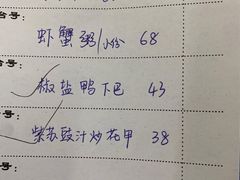 台号:
虾蟹粥/小份 68
台号:
椒盐鸭下巴 43
台号:
紫苏豉汁炒花甲 38
号: